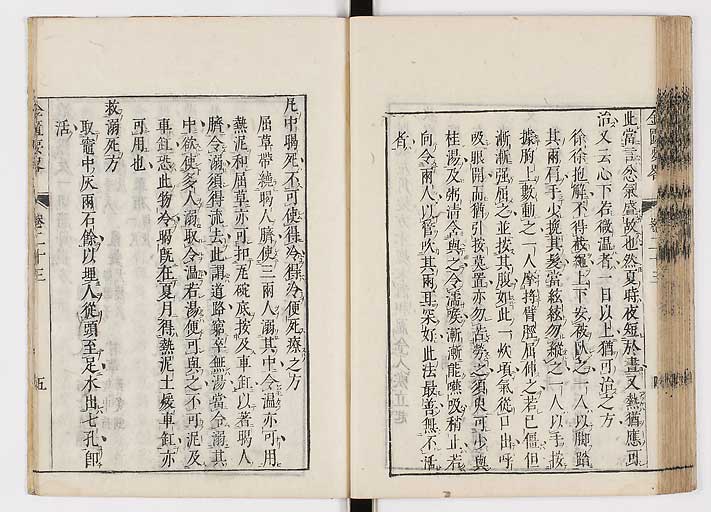 金匱要略　卷二十三　四
此當言忿氣盛故也然夏時夜短於晝又熱猶應可
治又云心下若微温者一日以上猶可治之方
徐徐抱解不得截繩上下安被臥之一人以脚踏
其兩肩手少挽其髮當絃絃勿縱之一人以手按
據胸上數動之一人摩捋臂脛屈伸之若已僵但
漸漸强屈之並按其腹如此一炊頃氣從口出呼
吸眼開而猶引按莫置亦勿苦勞之須臾可少與
桂湯及粥清含與之令濡喉漸漸能嚥吸稍止若
向令兩人以管吹其兩耳罙好此法最善無不活
者
凡中暍死不可使得冷得冷便死療之方
屈草帶繞暍人臍使三兩人溺其中令温亦可用
熱泥和屈草亦可扣瓦碗底按及車缸以著暍人
臍令溺須得流去此謂道路窮卒無湯當令溺其
中欲使多人溺取令温若湯便可與之不可泥及
車缸恐此物冷暍既在夏月得熱泥土煖車缸亦
可用也
救溺死方
取竈中灰兩石餘以埋人從頭至足水出七孔卽
活
金匱要略　卷二十三　五